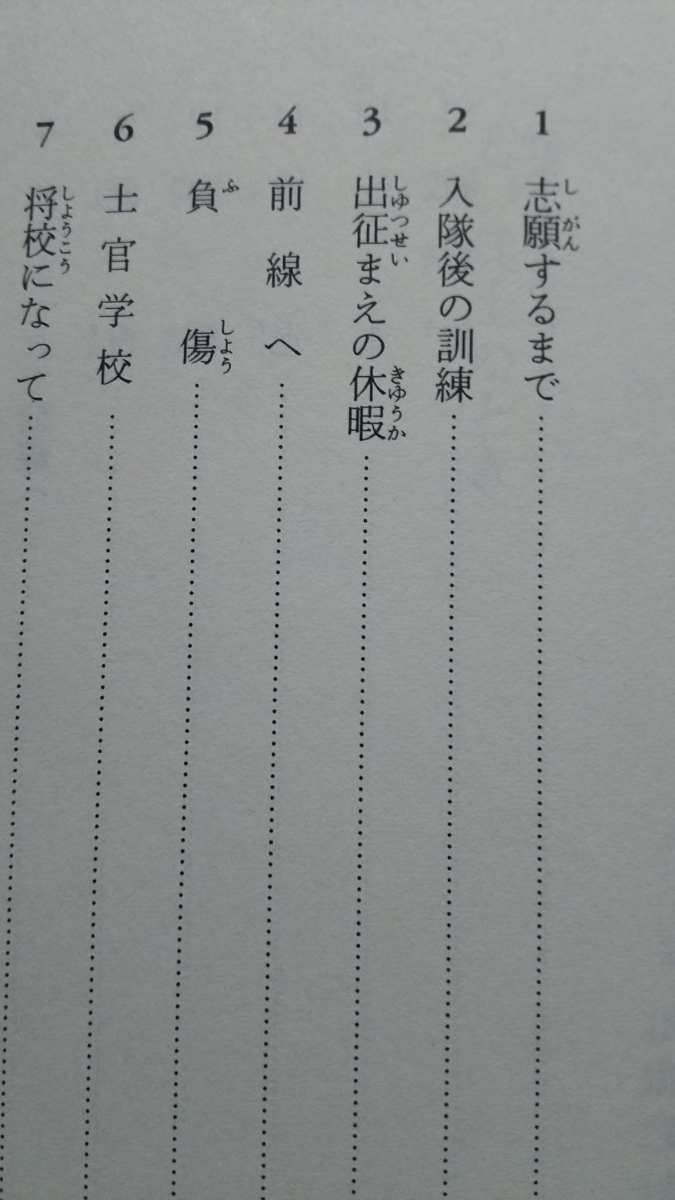 1 志願するまで
2 入隊後の訓練
3 出征まえの休暇
4 前線へ
5 負傷
6 士官学校
7 将校になって